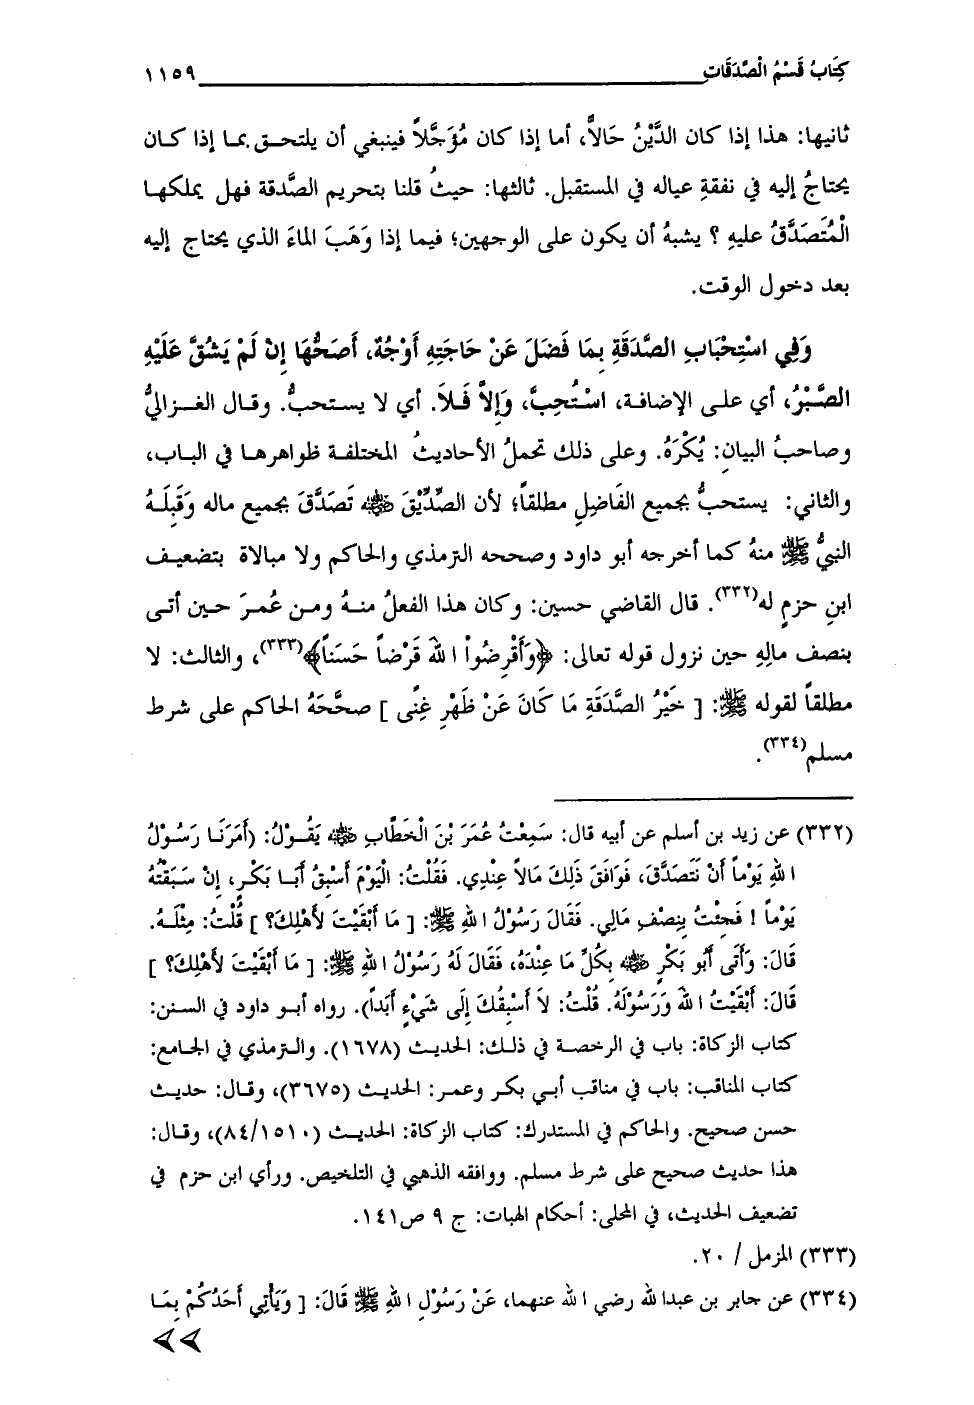 كِتَابُ قَسْمُ الْصَّدَقَاتِ ١١٥٩
ثانيها: هذا إذا كان الدَّيْنُ حَالاًّ، أما إذا كان مُؤَجَّلاً فينبغي أن يلتحق بما إذا كان
يحتاجُ إليه في نفقةِ عياله في المستقبل. ثالثها: حيثُ قلنا بتحريم الصَّدقة فهل يملكها
الْمُتَصَدَّقُ عليهِ ؟ يشبهُ أن يكون على الوجهين؛ فيما إذا وَهَبَ الماءَ الذي يحتاج إليه
بعد دخول الوقت.
وَفِي اسْتِحْبَابِ الصَّدَقَةِ بِمَا فَضَلَ عَنْ حَاجَتِهِ أَوْجُهٌ، أَصَحُّهَا إِنْ لَمْ يَشُقَّ عَلَيْهِ
الصَّبْرُ، أي على الإضافة، اسْتُحِبَّ، وَإِلاَّ فَلاَ. أي لا يستحبُّ. وقال الغزاليُّ
وصاحبُ البيان: يُكْرَهُ. وعلى ذلك تحملُ الأحاديثُ المختلفة ظواهرها في الباب،
والثاني: يستحبُّ بجميع الفَاضِلِ مطلقاً؛ لأن الصِّدِّيْقَ ﷺ تَصَدَّقَ بجميع ماله وَقَبِلَهُ
النبيُّ ﷺ منهُ كما أخرجه أبو داود وصححه الترمذي والحاكم ولا مبالاة بتضعيف
ابنِ حزمٍ له(٣٣٢). قال القاضي حسين: وكان هذا الفعلُ منهُ ومن عُمَرَ حين أتى
بنصف مالِهِ حين نزول قوله تعالى: ﴿وَأَقْرِضُواْ اللهَ قَرْضاً حَسَناً﴾(٣٣٣)، والثالث: لا
مطلقاً لقوله ﷺ: [ خَيْرُ الصَّدَقَةِ مَا كَانَ عَنْ ظَهْرِ غِنًى ] صحَّحَهُ الحاكم على شرط
مسلم(٣٣٤).
(٣٣٢) عن زيد بن أسلم عن أبيه قال: سَمِعْتُ عُمَرَ بْنَ الْخَطَّابِ ﷺ يَقُوْلُ: (أَمَرَنَا رَسُوْلُ
اللهِ يَوْماً أَنْ نَتَصَدَّقَ، فَوَافَقَ ذَلِكَ مَالاً عِنْدِي. فَقُلْتُ: الْيَوْمَ أَسْبِقُ أَبَا بَكْرٍ، إِنْ سَبَقْتُهُ
يَوْماً ! فَجِئْتُ بِنِصْفِ مَالِي. فَقَالَ رَسُوْلُ اللهِ ﷺ: [ مَا أَبْقَيْتَ لأَهْلِكَ؟ ] قُلْتُ: مِثْلَهُ.
قَالَ: وَأَتَى أَبُو بَكْرٍ ﷺ بِكُلِّ مَا عِنْدَهُ، فَقَالَ لَهُ رَسُوْلُ اللهِ ﷺ: [ مَا أَبْقَيْتَ لأَهْلِكَ؟ ]
قَالَ: أَبْقَيْتُ اللهَ وَرَسُوْلَهُ. قُلْتُ: لاَ أَسْبِقُكَ إِلَى شَيْءٍ أَبَداً). رواه أبو داود في السنن:
كتاب الزكاة: باب في الرخصة في ذلك: الحديث (١٦٧٨). والترمذي في الجامع:
كتاب المناقب: باب في مناقب أبي بكر وعمر: الحديث (٣٦٧٥)، وقال: حديث
حسن صحيح. والحاكم في المستدرك: كتاب الزكاة: الحديث (٨٤/١٥١٠)، وقال:
هذا حديث صحيح على شرط مسلم. ووافقه الذهبي في التلخيص. ورأي ابن حزم في
تضعيف الحديث، في المحلى: أحكام الهبات: ج ٩ ص١٤١.
(٣٣٣) المزمل / ٢٠.
(٣٣٤) عن جابر بن عبدالله رضي الله عنهما، عَنْ رَسُوْلِ اللهِ ﷺ قَالَ: [ وَيَأْتِي أَحَدُكُمْ بِمَا